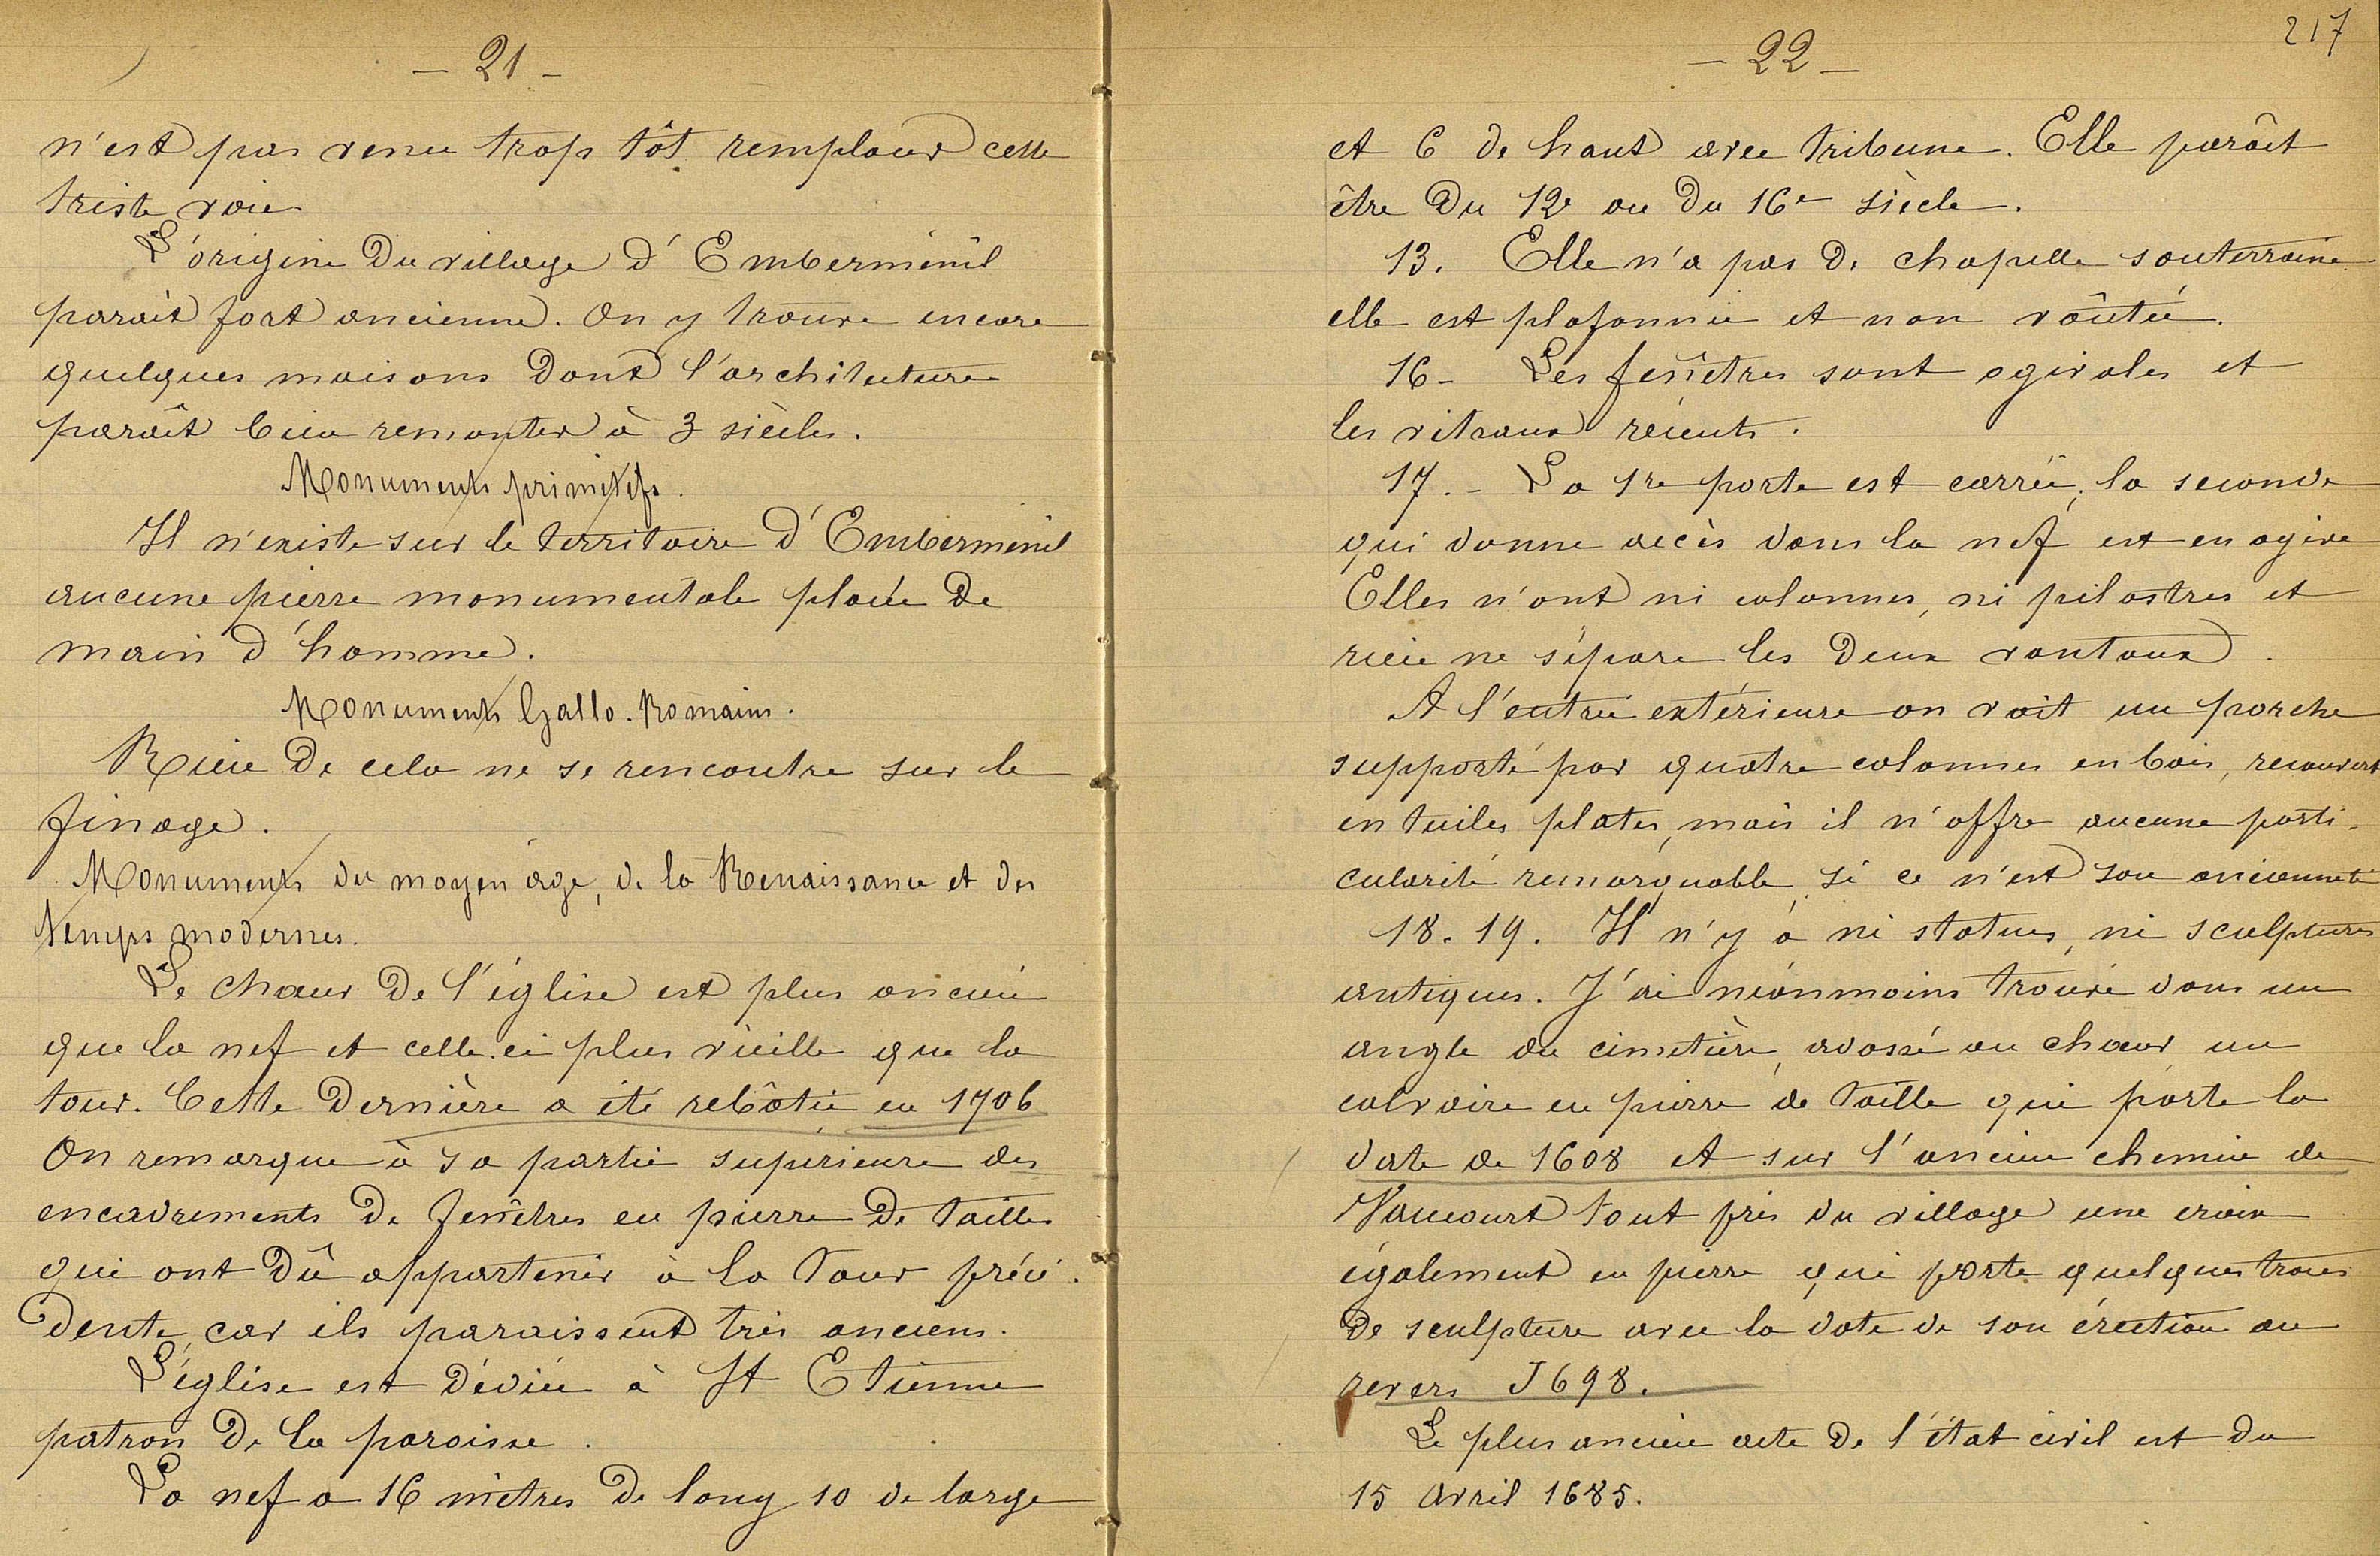 - 21 -
n'est pas venu trop tôt remplacer cette
triste voie.
L'origine du village d'Emberménil
parait fort ancienne. On y trouve encore
quelques maisons dont l'architecture
paraît bien remonter à 3 siècles.
Monuments primitifs.
Il n'existe sur le territoire d'Emberménil
aucune pierre monumentale placée de
main d'homme.
Monuments Gallo-Romains.
Rien de cela ne se rencontre sur le
finage.
Monuments du moyen âge, de la Renaissance et des
temps modernes.
Le chœur de l'église est plus ancien
que la nef et celle-ci plus vieille que la
tour. Cette dernière a été rebâtie en 1706
On remarque à sa partie supérieure des
encadrements de fenêtres en pierre de taille
qui ont dû appartenir à la tour précé-
dente, car ils paraissent très anciens.
L'église est dédiée à St Etienne
patron de la paroisse.
La nef a 16 mètres de long 10 de large
217
- 22 -
et 6 de haut avec tribune. Elle paraît
être du 12e ou du 16e siècle.
13. Elle n'a pas de chapelle souterraine
elle est plafonnée et non voûtée.
16- Les fenêtres sont ogivales et
les vitraux récents.
17.- La 1re porte est carrée, la seconde
qui donne accès dans la nef est en ogive
Elles n'ont ni colonnes, ni pilastres et
rien ne sépare les deux vantaux.
A l'entrée extérieure on voit un porche
supporté par quatre colonnes en bois, recouvert
en tuiles plates, mais il n'offre aucune parti-
cularité remarquable, si ce n'est son ancienneté
18. 19. Il n'y a ni statues, ni sculptures
antiques. J'ai néanmoins trouvé dans un
angle du cimetière, adossé au chœur un
calvaire en pierre de taille qui porte la
date de 1608 et sur l'ancien chemin de
Vaucourt tout près du village une croix
également en pierre qui porte quelques traces
de sculpture avec la date de son érection au
revers J698.
Le plus ancien acte de l'état civil est du
15 avril 1685.